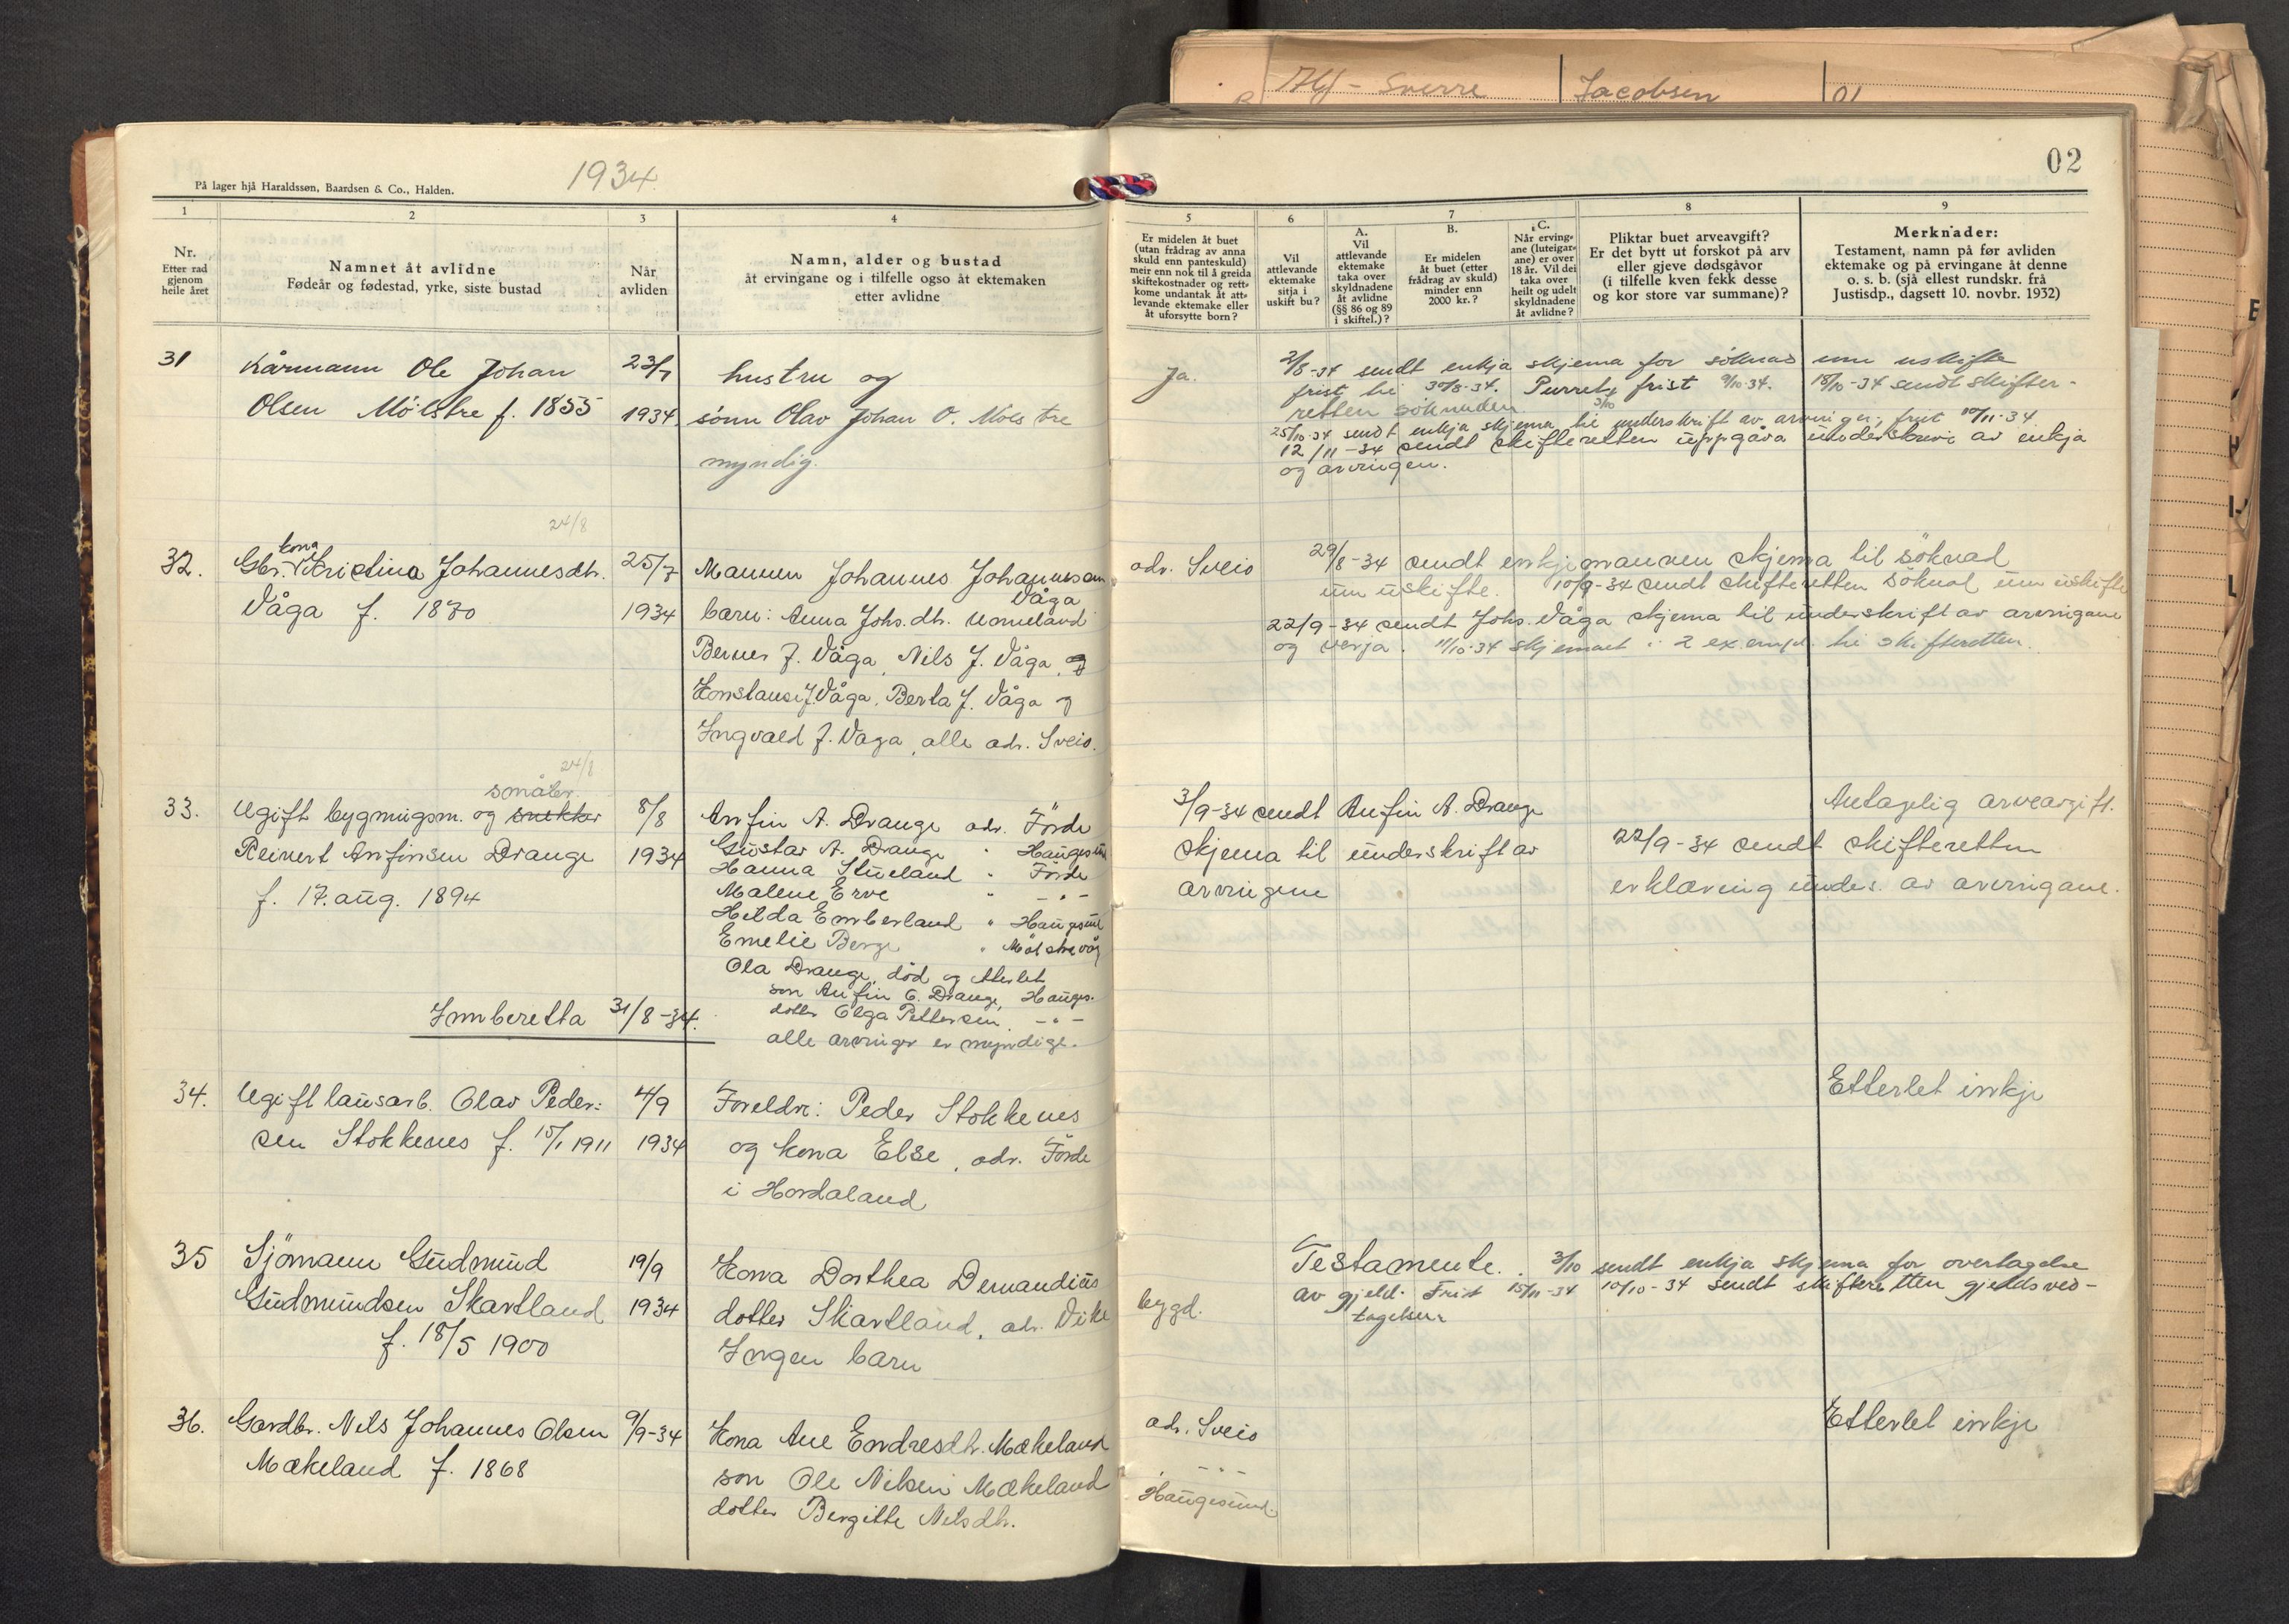 Alf - Sverre Jacobsen 01
På lager hjå Haraldssøn, Baardsen & Co., Halden.
1934.
02
1
2
3
4
5
6
7
8
9
Nr.
Etter rad
gjenom
heile året
Namnet åt avlidne
Fødeår og fødestad, yrke, siste bustad
Når
avliden
Namn, alder og bustad
åt ervingane og i tilfelle ogso åt ektemaken
etter avlidne
Er midelen åt buet
(utan frådrag av anna
skuld enn panteskuld)
meir enn nok til å greida
skiftekostnader og rett-
kome undantak åt att-
levande ektemake eller
åt uforsytte born?
Vil
attlevande
ektemake
sitja i
uskift bu?
A.
Vil
attlevande
ektemake
taka over
skyldnadene
åt avlidne
(§§ 86 og 89
i skiftel.)?
B.
Er midelen
åt buet (etter
frådrag av skuld)
minder enn
2000 kr.?
C.
Når erving-
ane (luteigar-
ane) er over
18 år. Vil dei
taka over
heilt og udelt
skyldnadene
åt avlidne?
Pliktar buet arveavgift?
Er det bytt ut forskot på arv
eller gjeve dødsgåvor
(i tilfelle kven fekk desse
og kor store var summane)?
Merknader:
Testament, namn på før avliden
ektemake og på ervingane åt denne
o. s. b. (sjå ellest rundskr. frå
Justisdp., dagsett 10. novbr. 1932)
31 Kårmann Ole Johan 23/7 hustru og
Olsen Mölstre f. 1855 1934. sönn Olav Johan O. Mölstre
myndig.
Ja.
2/8-34 sendt enkja skjema for söknad um uskifte
frist til 30/8-34. Purret frist 9/10-34. 15/10-34 sendt skifte-
retten söknaden.
25/10-34 sendt enkja skjema til underskrift av arvinger, frist 10/11-34
12/11-34 sendt skifteretten uppgåva underskreve av enkja
og arvingen.
24/8
kona
32. Gbr. Kristina Johannesdtr. 25/7 Mannen Johannes Johannessen
Våga
Våga f. 1870 1934 barn: Anna Johs. dtr.
Berner J. Våga, Nils J. Våga, og
Konstanse J. Våga, Berta J. Våga og
Ingvald J. Våga, alle adr. Sveio.
adr. Sveio 29/8-34 sendt enkjemannen skjema til söknad
um uskifte. 10/9-34 sendt skifteretten söknad um uskifte
22/9-34 sendt Johs. Våga skjema til underskrift av arvingane
og verja. 11/10-34 skjemaet i 2 exempl. til skifteretten.
24/8
småbr.
33. Ugift bygningsm. og snekker 8/8 Anfin A. Drange adr. Förde
Reinert Anfinsen Drange 1934 Gustav A. Drange " Haugesund
Hanna Stueland " Förde
f. 17. aug. 1894 Malene Erve " - " -
Hilda Emberland " Haugesund
Emelie Berge " Mölstrevåg
Ola Drange, död og etterlet
son Anfin O. Drange, Hauges.
dotter Olga Pettersen, - " -
alle arvinger er myndige.
3/9-34 sendt Anfin A. Drange
skjema til underskrift av
arvingene
Antagelig arveavgift.
22/9-34 sendt skifteretten
erklæring unders. av arvingane.
Innberetta 31/8-34.
34. Ugift lausarb. Olav Peder- 4/9 Foreldre: Peder Stokkenes
sen Stokkenes f. 15/1 1911 1934 og kona Else, adr. Förde
i Hordaland
Etterlet inkje
35 Sjömann Gudmund 19/9 Kona Dorthea Demandius
Gudmundsen Skartland 1934 dotter Skartland, adr. Vike
f. 18/5 1900 Ingen barn
bygd.
Testamente. 3/10 sendt enkja skjema for overtagelse
av gjeld. Frist 15/11-34 10/10-34 sendt skifteretten gjeldsved-
tagelsen
36. Gardbr. Nils Johannes Olsen 9/9-34 Kona Ane Endresdtr. Mækeland
Mækeland f. 1868 son Ole Nilsen Mækeland
dotter Bergitte Nilsdtr.
adr. Sveio
- " -
Haugesund.
Etterlet inkje